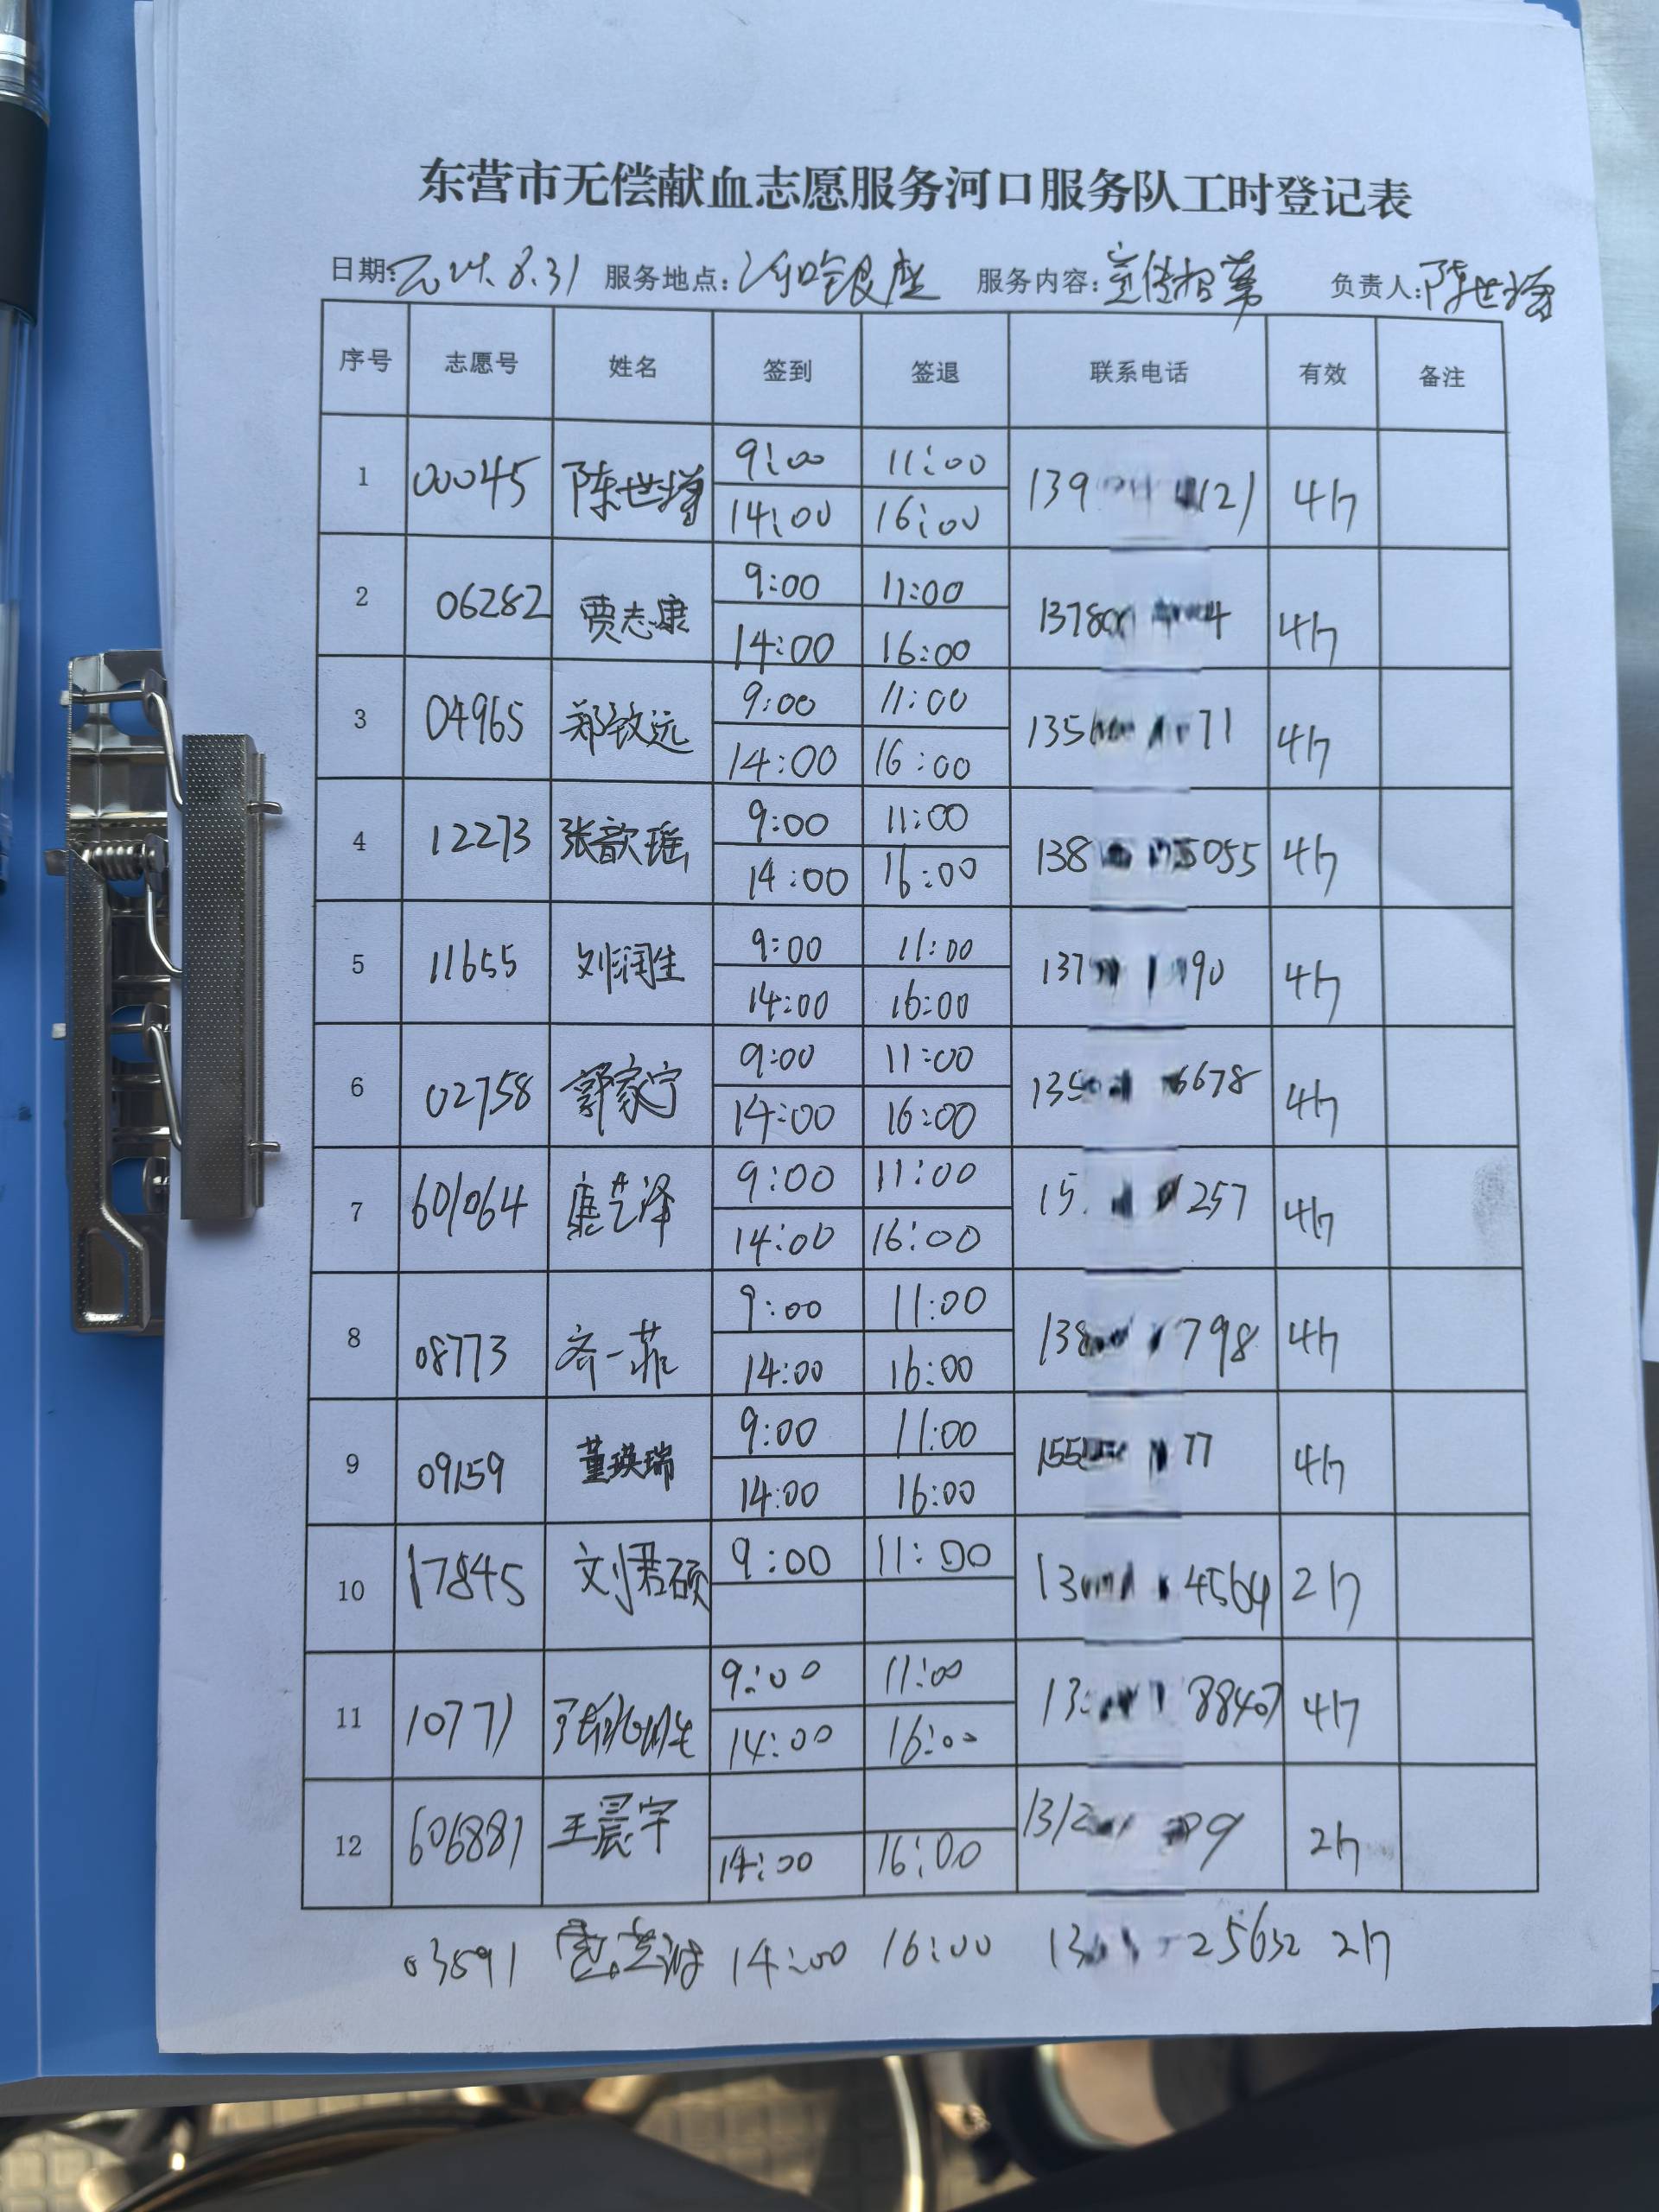 东营市无偿献血志愿服务河口服务队工时登记表
日期: 2024.8.31 服务地点: 河口银座 服务内容: 宣传招募 负责人: 陈世增
序号 志愿号 姓名 签到 签退 联系电话 有效 备注
9:00 11:00
1 00045 陈世增 139 121 4h
14:00 16:00
9:00 11:00
2 06282 贾志康 1378 4 4h
14:00 16:00
9:00 11:00
3 04965 郑钦远 135 71 4h
14:00 16:00
9:00 11:00
4 12273 张歆瑶 138 5055 4h
14:00 16:00
9:00 11:00
5 11655 刘润生 137 90 4h
14:00 16:00
9:00 11:00
6 02758 郭家宁 135 6678 4h
14:00 16:00
9:00 11:00
7 601064 康艺泽 15 257 4h
14:00 16:00
9:00 11:00
8 08773 齐一菲 138 798 4h
14:00 16:00
9:00 11:00
9 09159 董瑛瑞 155 77 4h
14:00 16:00
9:00 11:00
10 17845 刘君硕 13 4564 2h
9:00 11:00
11 10771 13 88407 4h
14:00 16:00
12 606881 王晨宇 1312 9 2h
14:00 16:00
03591 14:00 16:00 13 25632 2h